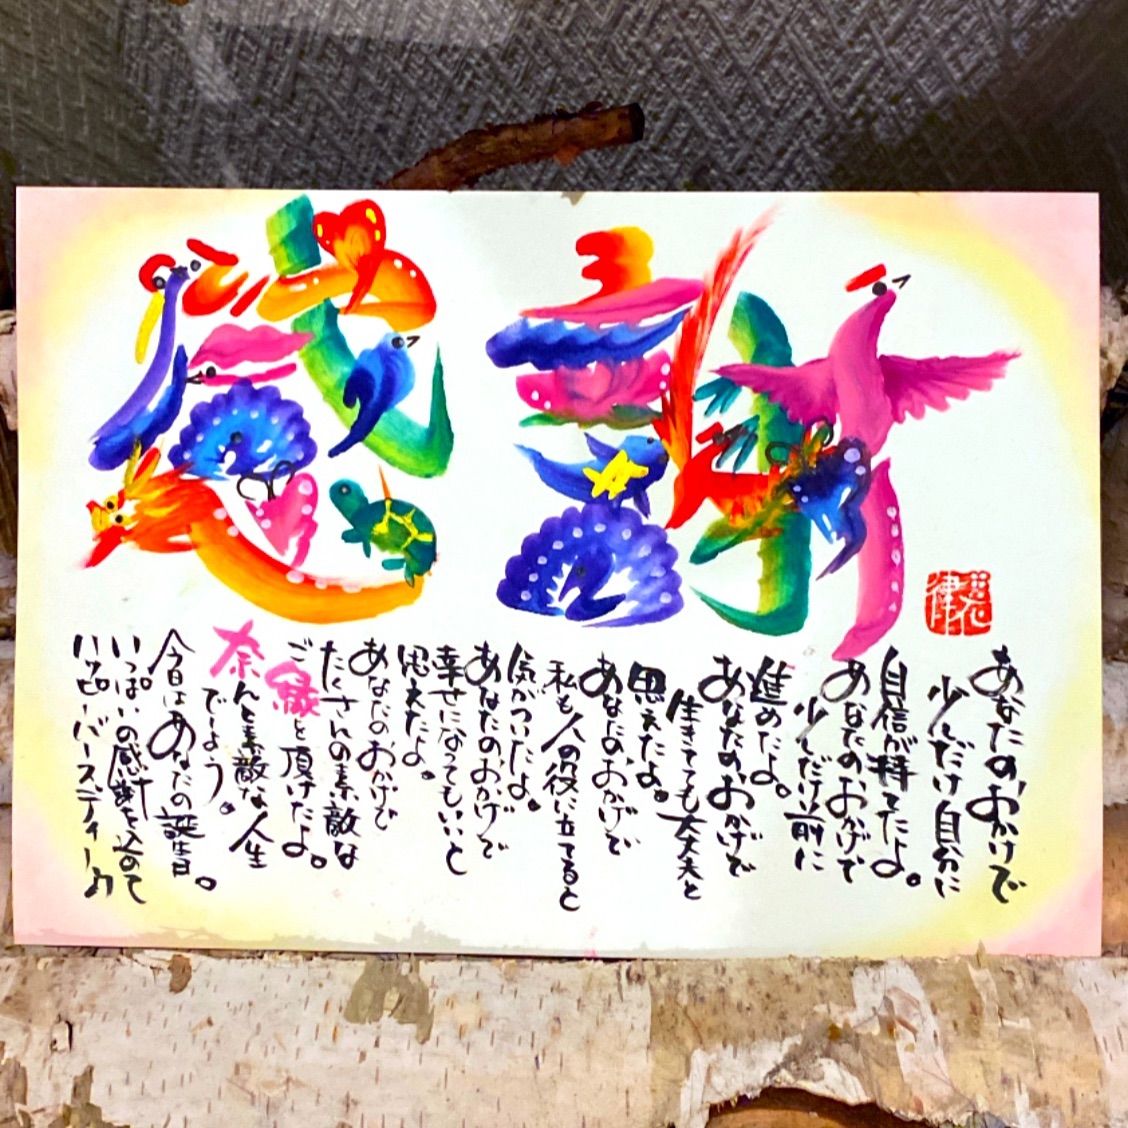 感謝
あなたの、おかげで
少しだけ自分に
自信が持てたよ。
あなたのおかげで
少しだけ前に
進めたよ。
あなたの、おかげで
生きてても大丈夫と
思えたよ。
あなたの、おかげで
私も人の役に立てると
気がついたよ。
あなたの、おかげで
幸せになってもいいと
思えたよ。
あなたのおかげで
たくさんの素敵な
ご縁を頂けたよ。
奈んと素敵な人生
でしょう。
今日はあなたの誕生日。
いっぱいの感謝を込めて
ハッピーバースディー